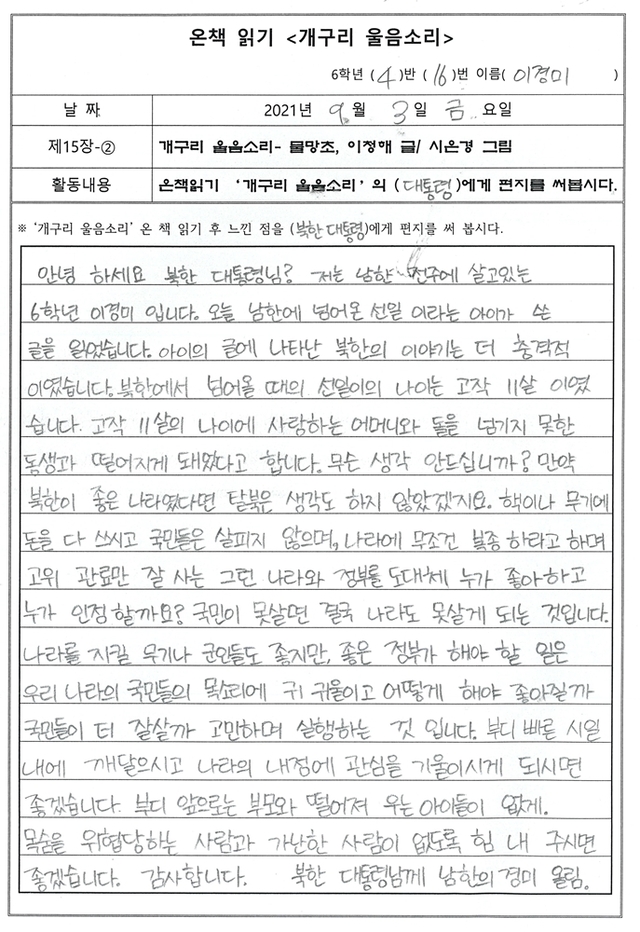 온책 읽기 <개구리 울음소리>
6학년 (4)반 (16)번 이름( 이경미 )
날 짜 2021년 9월 3일 금 요일
제15장-② 개구리 울음소리- 물망초, 이정해 글/ 시은경 그림
활동내용 온책읽기 ‘개구리 울음소리’ 의 (대통령)에게 편지를 써봅시다.
※ ‘개구리 울음소리’ 온 책 읽기 후 느낀 점을 (북한 대통령)에게 편지를 써 봅시다.
안녕 하세요 북한 대통령님? 저는 남한 전주에 살고있는
6학년 이경미 입니다. 오늘 남한에 넘어온 선일 이라는 아이가 쓴
글을 읽었습니다. 아이의 글에 나타난 북한의 이야기는 더 충격적
이였습니다. 북한에서 넘어올 때의 선일이의 나이는 고작 11살 이였
습니다. 고작 11살의 나이에 사랑하는 어머니와 돌을 넘기지 못한
동생과 떨어지게 돼였다고 합니다. 무슨 생각 안드십니까? 만약
북한이 좋은 나라였다면 탈북은 생각도 하지 않았겠지요. 핵이나 무기에
돈을 다 쓰시고 국민들은 살피지 않으며, 나라에 무조건 복종 하라고 하며
고위 관료만 잘 사는 그런 나라와 정부를 도대체 누가 좋아하고
누가 인정 할까요? 국민이 못살면 결국 나라도 못살게 되는 것입니다.
나라를 지킬 무기나 군인들도 좋지만, 좋은 정부가 해야 할 일은
우리 나라의 국민들의 목소리에 귀 귀울이고 어떻게 해야 좋아질까
국민들이 더 잘살까 고민하며 실행하는 것 입니다. 부디 빠른 시일
내에 깨달으시고 나라의 내정에 관심을 기울이시게 되시면
좋겠습니다. 부디 앞으로는 부모와 떨어져 우는 아이들이 없게.
목숨을 위협당하는 사람과 가난한 사람이 없도록 힘 내 주시면
좋겠습니다. 감사합니다. 북한 대통령님께 남한의 경미 올림.